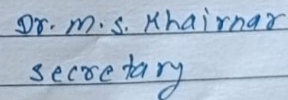 Dr. M. S. Khairnar
secretary